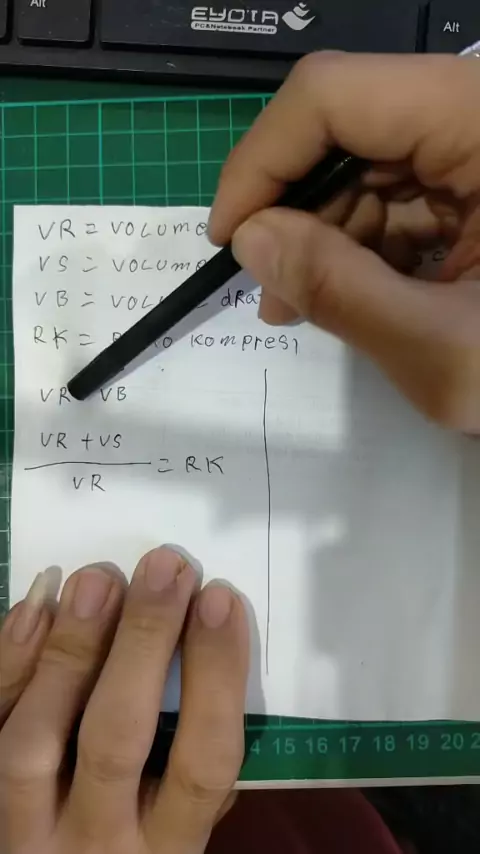 Alt
EYOTA
PC&Notebook Partner
Alt
VR = VOLUME
VS = VOLUME
VB = dRat
RK = KOMPRESI
VR VB
VR + VS
= RK
VR
14 15 16 17 18 19 20 2